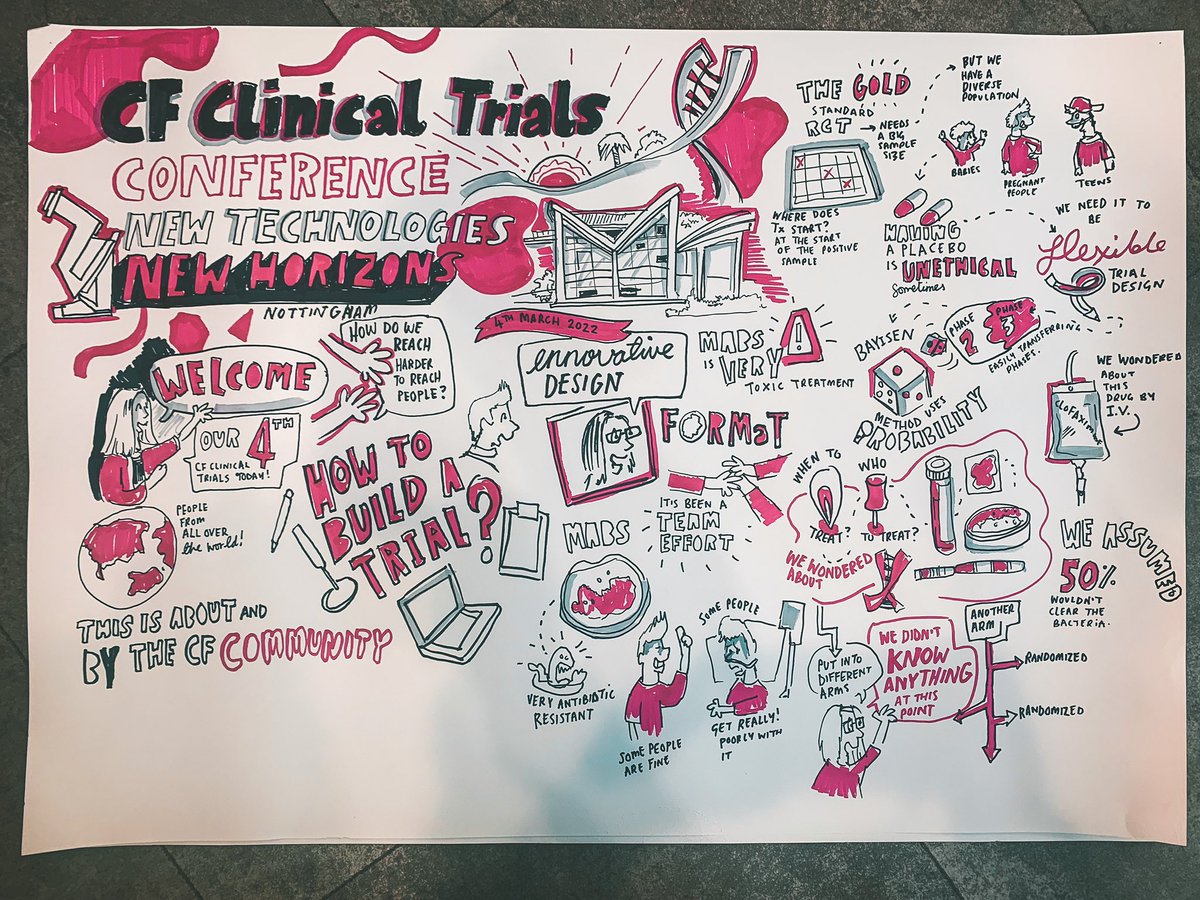 CF Clinical Trials
CONFERENCE
NEW TECHNOLOGIES
NEW HORIZONS
NOTTINGHAM
4TH MARCH 2022
WELCOME
OUR 4TH
CF CLINICAL
TRIALS TODAY!
HOW DO WE
REACH
HARDER
TO REACH
PEOPLE?
PEOPLE
FROM
ALL OVER
the world!
THIS IS ABOUT AND
BY THE CF COMMUNITY
HOW TO
BUILD A
TRIAL?
ennovative
DESIGN
FORMAT
IT IS BEEN A
TEAM
EFFORT
MABS
IS VERY
TOXIC TREATMENT
MABS
VERY ANTIBIOTIC
RESISTANT
SOME PEOPLE
ARE FINE
SOME PEOPLE
GET REALLY!
POORLY WITH
IT
THE GOLD
STANDARD
RCT
NEEDS
A BIG
SAMPLE
SIZE
BUT WE
HAVE A
DIVERSE
POPULATION
BABIES
PREGNANT
PEOPLE
TEENS
WHERE DOES
Tx START?
AT THE START
OF THE POSITIVE
SAMPLE
HAVING
A PLACEBO
IS UNETHICAL
Sometimes
WE NEED IT TO
BE
flexible
TRIAL
DESIGN
BAYISEN
METHOD USES
PROBABILITY
PHASE
2
PHASE
3
EASILY TRANSFERRING
PHASES.
WHEN TO
TREAT?
WHO
TO TREAT?
WE WONDERED
ABOUT
WE WONDERED
ABOUT
THIS
DRUG BY
I.V.
WE ASSUMED
50%
WOULDN'T
CLEAR THE
BACTERIA.
PUT INTO
DIFFERENT
ARMS
WE DIDN'T
KNOW
ANYTHING
AT THIS
POINT
ANOTHER
ARM
RANDOMIZED
RANDOMIZED